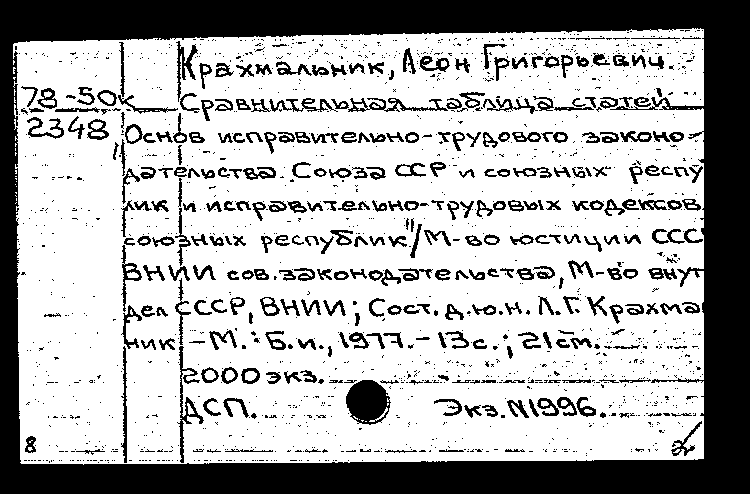 Крахмальник, Леон Григорьевич.
78-50к Сравнительная таблица статей
2348 "Основ исправительно-трудового законо-
дательства Союза ССР и союзных респу
лик и исправительно-трудовых кодексов
союзных республик"/М-во юстиции ССС
ВНИИ сов. законодательства, М-во внут
дел СССР, ВНИИ; Сост. д.ю.н. Л.Г. Крахма
ник - М.: Б.и., 1977. - 13с.; 21см.
2000 экз.
ДСП. Экз. N1996.
8 2